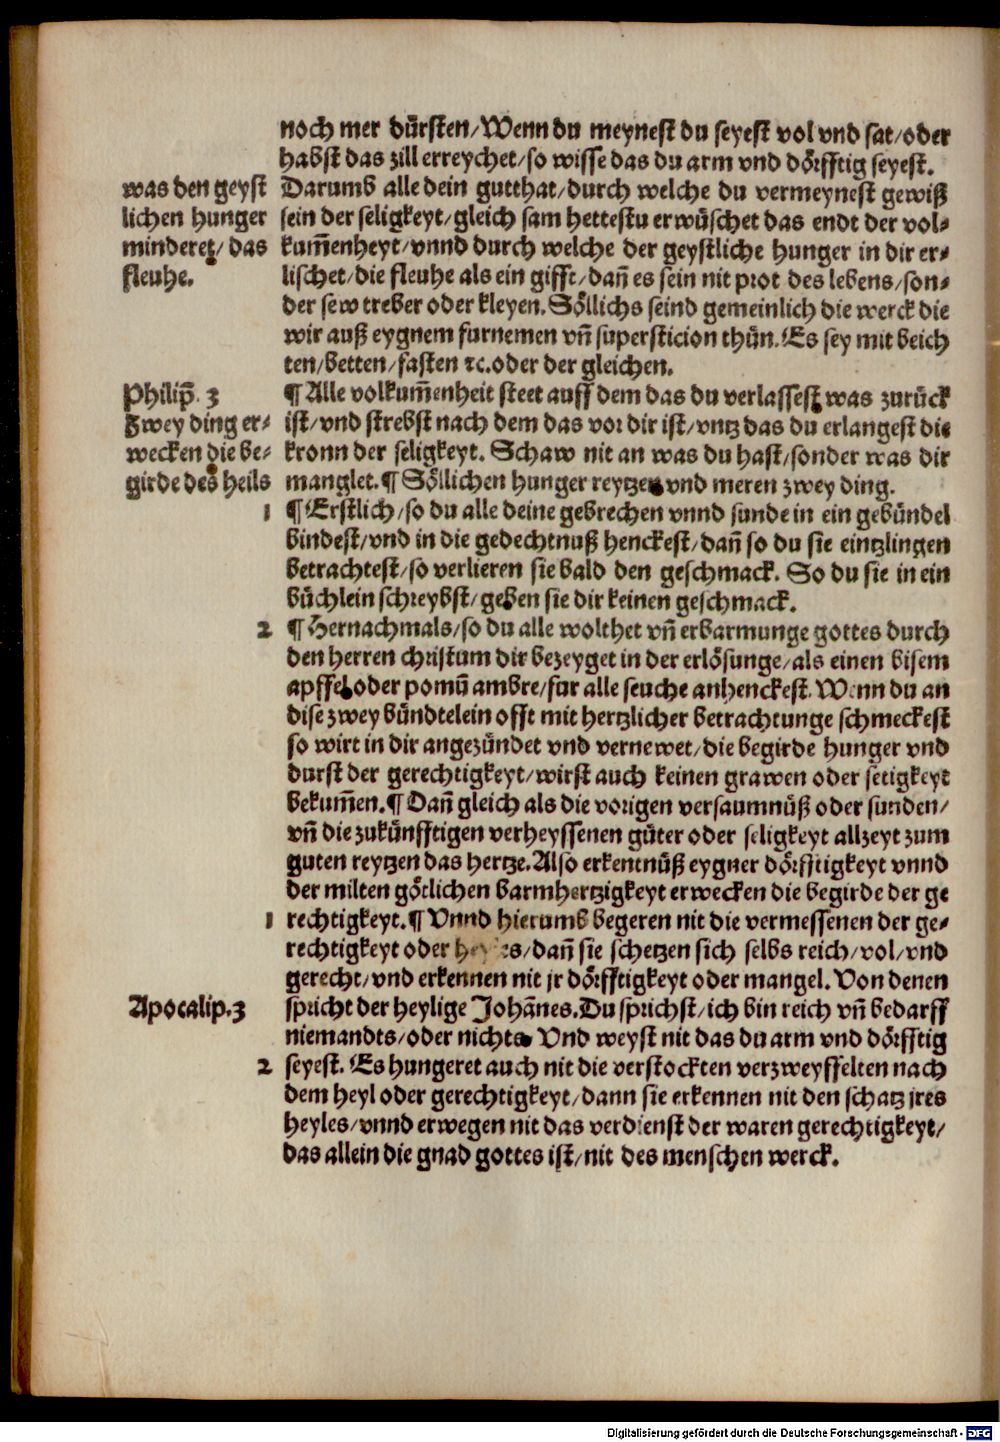 noch mer dürsten/Wenn du meynest du seyest vol vnd sat/oder
habst das zill erreychet/so wisse das du arm vnd dörfftig seyest.
was den geyst
lichen hunger
minderet/ das
fleuhe.
Darumb alle dein gutthat/durch welche du vermeynest gewiß
sein der seligkeyt/gleich sam hettestu erwüschet das endt der vol-
kum̄enheyt/vnnd durch welche der geystliche hunger in dir er-
lischet/die fleuhe als ein gifft/dan̄ es sein nit prot des lebens/son-
der sew treber oder kleyen. Söllichs seind gemeinlich die werck die
wir auß eygnem furnemen vn̄ supersticion thün. Es sey mit beich
ten/betten/fasten ⁊c.oder der gleichen.
Philip̄. 3
Zwey ding er-
wecken die be-
girde des heils
¶ Alle volkum̄enheit steet auff dem das du verlassest was zurück
ist/vnd strebst nach dem das vor dir ist/vntz das du erlangest die
kronn der seligkeyt. Schaw nit an was du hast/sonder was dir
manglet.¶ Söllichen hunger reytzen vnd meren zwey ding.
1 ¶ Erstlich/so du alle deine gebrechen vnnd sunde in ein gebündel
bindest/vnd in die gedechtnuß henckest/dan̄ so du sie eintzlingen
betrachtest/so verlieren sie bald den geschmack. So du sie in ein
büchlein schreybst/geben sie dir keinen geschmack.
2 ¶ Hernachmals/so du alle wolthet vn̄ erbarmunge gottes durch
den herren christum dir bezeyget in der erlösunge/als einen bisem
apffel oder pomū ambre/fur alle seuche anhenckest. Wenn du an
dise zwey bündtelein offt mit hertzlicher betrachtunge schmeckest
so wirt in dir angezündet vnd vernewet/die begirde hunger vnd
durst der gerechtigkeyt/wirst auch keinen grawen oder setigkeyt
bekum̄en.¶ Dan̄ gleich als die vorigen versaumnüß oder sunden/
vn̄ die zukünfftigen verheyssenen güter oder seligkeyt allzeyt zum
guten reytzen das hertze.Also erkentnüß eygner dörfftigkeyt vnnd
der milten götlichen barmhertzigkeyt erwecken die begirde der ge
1 rechtigkeyt.¶ Vnnd hierumb begeren nit die vermessenen der ge-
rechtigkeyt oder /dan̄ sie schetzen sich selbs reich/vol/vnd
gerecht/vnd erkennen nit jr dörfftigkeyt oder mangel. Von denen
Apocalip.3
spricht der heylige Johānes.Du sprichst/ich bin reich vn̄ bedarff
niemandts/oder nichts Vnd weyst nit das du arm vnd dörfftig
2 seyest. Es hungeret auch nit die verstockten verzweyffelten nach
dem heyl oder gerechtigkeyt/dann sie erkennen nit den schatz jres
heyles/vnnd erwegen nit das verdienst der waren gerechtigkeyt/
das allein die gnad gottes ist/nit des menschen werck.
Digitalisierung gefördert durch die Deutsche Forschungsgemeinschaft - DFG